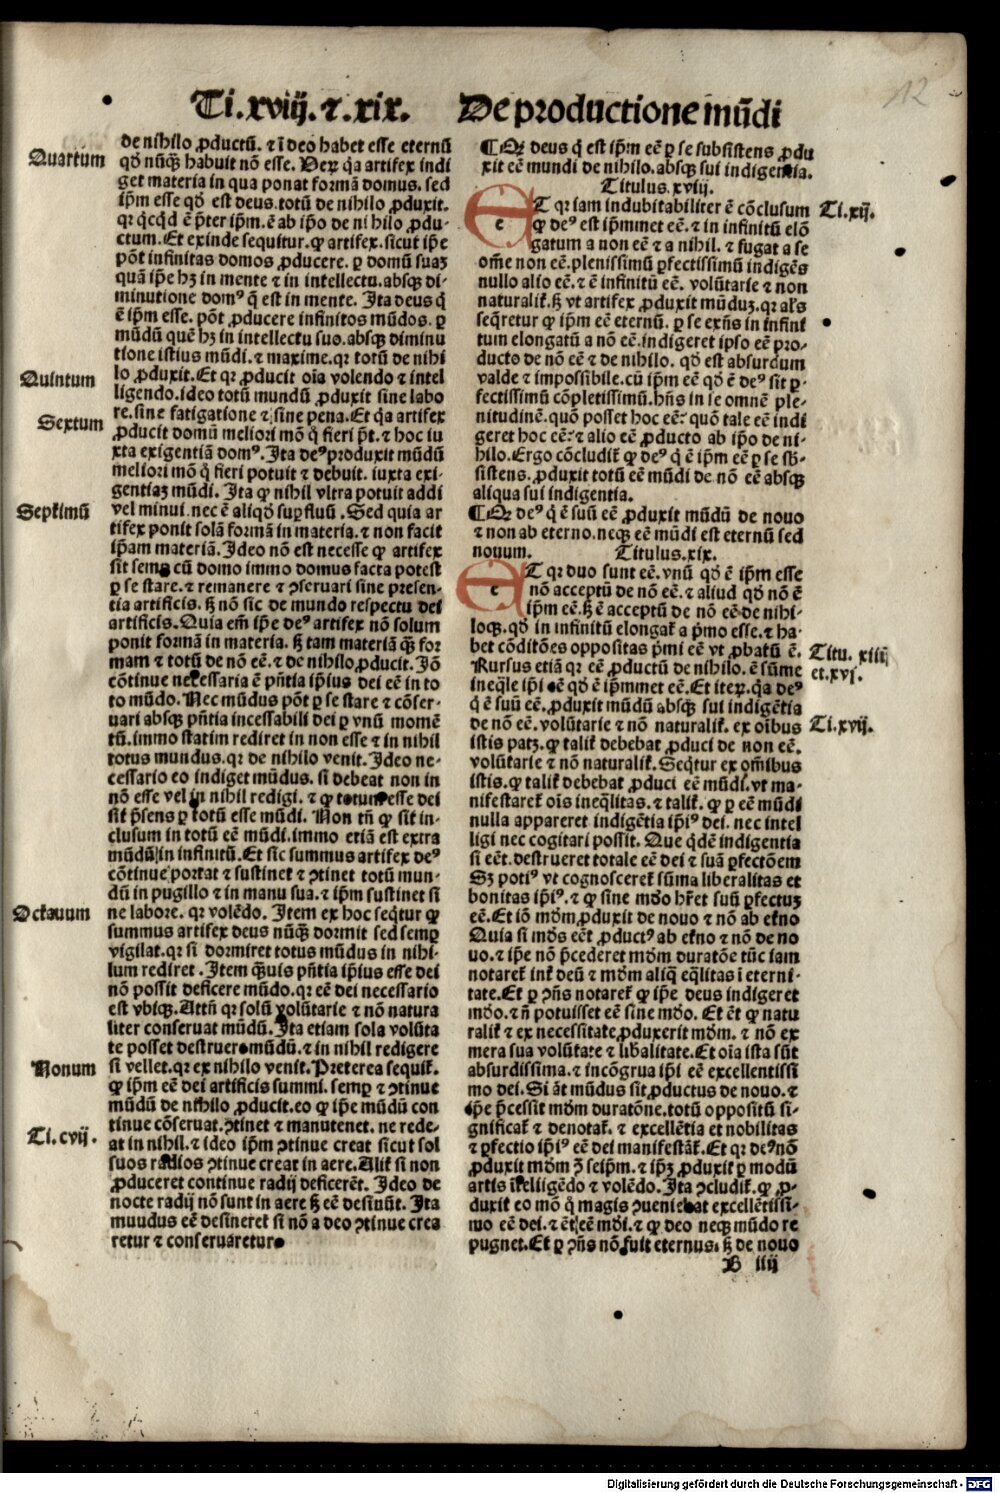 Ti.xviij.⁊.xix. De productione mūdi
12
de nihilo ꝓductū. ⁊ īdeo habet esse eternū
Quartum
qđ nūqꝫ habuit nō esse. Verꝝ q̄a artifex indi
get materia in qua ponat formā domus. sed
ip̄m esse qđ est deus. totū de nihilo ꝓduxit.
qꝛ qͥcqͥd ē p̄ter ip̄m. ē ab ip̄o de nihilo ꝓdu-
ctum. Et exinde sequitur. ꝙ artifex. sicut ip̄e
pōt infinitas domos ꝓducere. ꝑ domū suaꝫ
quā ip̄e hꝫ in mente ⁊ in intellectu. absqꝫ di-
minutione domꝰ q̄ est in mente. Ita deus q̄
ē ip̄m esse. pōt ꝓducere infinitos mūdos. ꝑ
mūdū quē hꝫ in intellectu suo. absqꝫ diminu
tione istius mūdi. ⁊ maxime. qꝛ totū de nihi
Quintum
lo ꝓduxit. Et qꝛ ꝓducit oīa volendo ⁊ intel
ligendo. ideo totū mundū ꝓduxit sine labo
re. sine fatigatione ⁊ sine pena. Et q̄a artifex
Sextum
ꝓducit domū meliori mō q̄ fieri p̄t. ⁊ hoc iu
xta exigentiā domꝰ. Ita deꝰ produxit mūdū
meliori mō q̄ fieri potuit ⁊ debuit. iuxta exi-
gentiaꝫ mūdi. Ita ꝙ nihil vltra potuit addi
Septimū
vel minui. nec ē aliqđ suꝑfluū. Sed quia ar
tifex ponit solā formā in materia. ⁊ non facit
ip̄am materiā. Ideo nō est necesse ꝙ artifex
sit semꝑ cū domo immo domus facta potest
ꝑ se stare. ⁊ remanere ⁊ ꝯseruari sine presen-
tia artificis. sꝫ nō sic de mundo respectu dei
artificis. Quia em̄ ip̄e deꝰ artifex nō solum
ponit formā in materia. sꝫ tam materiā qꝫ for
mam ⁊ totū de nō eē. ⁊ de nihilo ꝓducit. Iō
cōtinue necessaria ē p̄ntia ip̄ius dei eē in to
to mūdo. Nec mūdus pōt ꝑ se stare ⁊ cōser-
uari absqꝫ p̄ntia incessabili dei ꝑ vnū momē
tū. immo statim rediret in non esse ⁊ in nihil
totus mundus. qꝛ de nihilo venit. Ideo ne-
cessario eo indiget mūdus. si debeat non in
nō esse vel in nihil redigi. ⁊ ꝙ totum esse dei
sit p̄sens ꝑ totū esse mūdi. Non tn̄ ꝙ sit in-
clusum in totū eē mūdi. immo etiā est extra
mūdū in infinitū. Et sic summus artifex deꝰ
cōtinue portat ⁊ sustinet ⁊ ꝯtinet totū mun-
dū in pugillo ⁊ in manu sua. ⁊ ip̄m sustinet si
Octauum
ne labore. qꝛ volēdo. Item ex hoc seq̄tur ꝙ
summus artifex deus nūqꝫ dormit sed semꝑ
vigilat. qꝛ si dormiret totus mūdus in nihi-
lum rediret. Item qꝫuis p̄ntia ip̄ius esse dei
nō possit deficere mūdo. qꝛ eē dei necessario
est vbiqꝫ. Attn̄ qꝛ solū volūtarie ⁊ nō natura
liter conseruat mūdū. Ita etiam sola volūta
te posset destruere mūdū. ⁊ in nihil redigere
Nonum
si vellet. qꝛ ex nihilo venit. Preterea sequit᷑.
ꝙ ip̄m eē dei artificis summi. semꝑ ⁊ ꝯtinue
mūdū de nihilo ꝓducit. eo ꝙ ip̄e mūdū con
tinue cōseruat. ꝯtinet ⁊ manutenet. ne rede-
Ti.cvij.
at in nihil. ⁊ ideo ip̄m ꝯtinue creat sicut sol
suos radios ꝯtinue creat in aere. Alit᷑ si non
ꝓduceret continue radij deficerēt. Ideo de
nocte radij nō sunt in aere sꝫ eē desinūt. Ita
muudus eē desineret si nō a deo ꝯtinue crea
retur ⁊ conseruaretur.
¶Qꝛ deus q̄ est ip̄m eē ꝑ se subsistens ꝓdu
xit eē mundi de nihilo. absqꝫ sui indigentia.
Titulus.xviij.
ET qꝛ iam indubitabiliter ē cōclusum
Ti.xij.
ꝙ deꝰ est ip̄mmet eē. ⁊ in infinitū elō
gatum a non eē ⁊ a nihil. ⁊ fugat a se
om̄e non eē. plenissimū ꝑfectissimū indigēs
nullo alio eē. ⁊ ē infinitū eē. volūtarie ⁊ non
naturalit᷑. sꝫ vt artifex ꝓduxit mūduꝫ. qꝛ al's
seq̄retur ꝙ ip̄m eē eternū. ꝑ se exn̄s in infini
tum elongatū a nō eē. indigeret ipso eē pro-
ducto de nō eē ⁊ de nihilo. qđ est absurdum
valde ⁊ impossibile. cū ip̄m eē qđ ē deꝰ sit ꝑ-
fectissimū cōpletissimū. hn̄s in se omnē ple-
nitudinē. quō posset hoc eē: quō tale eē indi
geret hoc eē: ⁊ alio eē ꝓducto ab ip̄o de ni-
hilo. Ergo cōcludit᷑ ꝙ deꝰ q̄ ē ip̄m eē ꝑ se sb̄-
sistens. ꝓduxit totū eē mūdi de nō eē absqꝫ
aliqua sui indigentia.
¶Qꝛ deꝰ q̄ ē suū eē ꝓduxit mūdū de nouo
⁊ non ab eterno. neqꝫ eē mūdi est eternū sed
nouum. Titulus.xix.
ET qꝛ duo sunt eē. vnū qđ ē ip̄m esse
nō acceptū de nō eē. ⁊ aliud qđ nō ē
ip̄m eē. sꝫ ē acceptū de nō eē de nihi-
loqꝫ. qđ in infinitū elongat᷑ a p̄mo esse. ⁊ ha-
bet cōditōes oppositas p̄mi eē vt ꝓbatū ē.
Titu. xiiij
Rursus etiā qꝛ eē ꝓductū de nihilo. ē sūme
et.xvj.
ineq̄le ip̄i eē qđ ē ip̄mmet eē. Et iteꝝ. q̄a deꝰ
q̄ ē suū eē. ꝓduxit mūdū absqꝫ sui indigētia
de nō eē. volūtarie ⁊ nō naturalit᷑. ex oībus
Ti.xvij.
istis patꝫ. ꝙ talit᷑ debebat ꝓduci de non eē.
volūtarie ⁊ nō naturalit᷑. Seq̄tur ex om̄ibus
istis. ꝙ talit᷑ debebat ꝓduci eē mūdi. vt ma-
nifestaret᷑ oīs ineq̄litas. ⁊ talit᷑. ꝙ ꝑ eē mūdi
nulla appareret indigētia ip̄iꝰ dei. nec intel
ligi nec cogitari possit. Que qͥdē indigentia
si eēt. destrueret totale eē dei ⁊ suā ꝑfectōem
Sꝫ potiꝰ vt cognosceret᷑ sūma liberalitas et
bonitas ip̄iꝰ. ⁊ ꝙ sine mdo hr̄et suū ꝑfectuꝫ
eē. Et iō mdm̄ ꝓduxit de nouo ⁊ nō ab et᷑no
Quia si mds eēt ꝓductꝰ ab et᷑no ⁊ nō de no
uo. ⁊ ip̄e nō p̄cederet mdm̄ duratōe tūc iam
notaret᷑ int᷑ deū ⁊ mdm̄ aliq̄ eq̄litas ī eterni-
tate. Et ꝑ ꝯn̄s notaret᷑ ꝙ ip̄e deus indigeret
mdo. ⁊ n̄ potuisset eē sine mdo. Et ēt ꝙ natu
ralit᷑ ⁊ ex necessitate ꝓduxerit mdm̄. ⁊ nō ex
mera sua volūtate ⁊ lib̄alitate. Et oīa ista sūt
absurdissima. ⁊ incōgrua ip̄i eē excellentissi
mo dei. Si āt mūdus sit ꝓductus de nouo. ⁊
ip̄e p̄cessit mdm̄ duratōne. totū oppositū si-
gnificat᷑ ⁊ denotat᷑. ⁊ excellētia et nobilitas
⁊ ꝑfectio ip̄iꝰ eē dei manifestāt᷑. Et qꝛ deꝰ nō
ꝓduxit mdm̄ ꝫ seip̄m. ⁊ ip̄ꝫ ꝓduxit ꝑ modū
artis īt᷑elligēdo ⁊ volēdo. Ita ꝯcludit᷑. ꝙ ꝓ-
duxit eo mō q̄ magis ꝯueniebat excellētissi-
mo eē dei. ⁊ ēt eē mdi. ⁊ ꝙ deo neqꝫ mūdo re
pugnet. Et ꝑ ꝯn̄s nō fuit eternus. sꝫ de nouo
B iiij
Digitalisierung gefördert durch die Deutsche Forschungsgemeinschaft - DFG